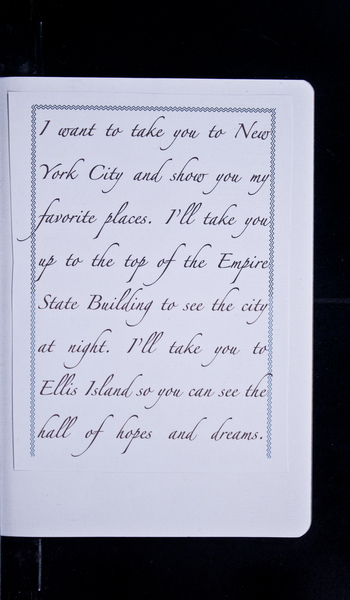 I want to take you to New
York City and show you my
favorite places. I'll take you
up to the top of the Empire
State Building to see the city
at night. I'll take you to
Ellis Island so you can see the
hall of hopes and dreams.